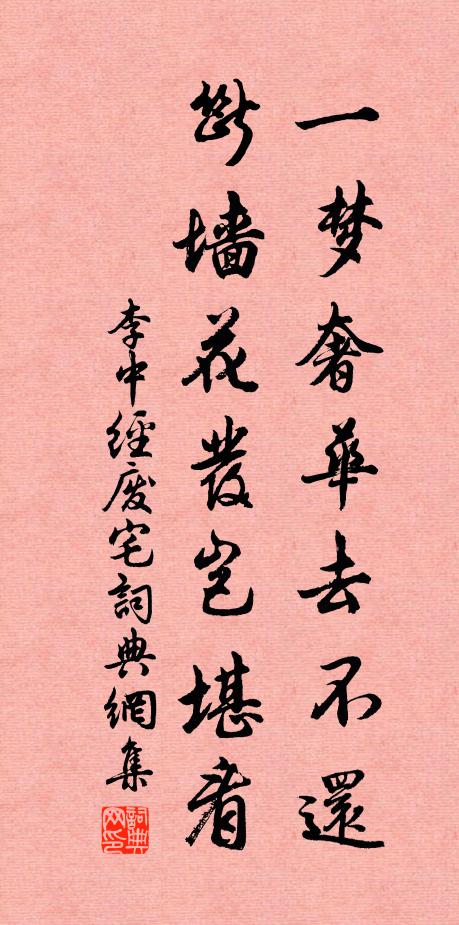 一梦奢華去不還
斷墙花發岂堪看
李中經廢宅詞典網集
詞典网印